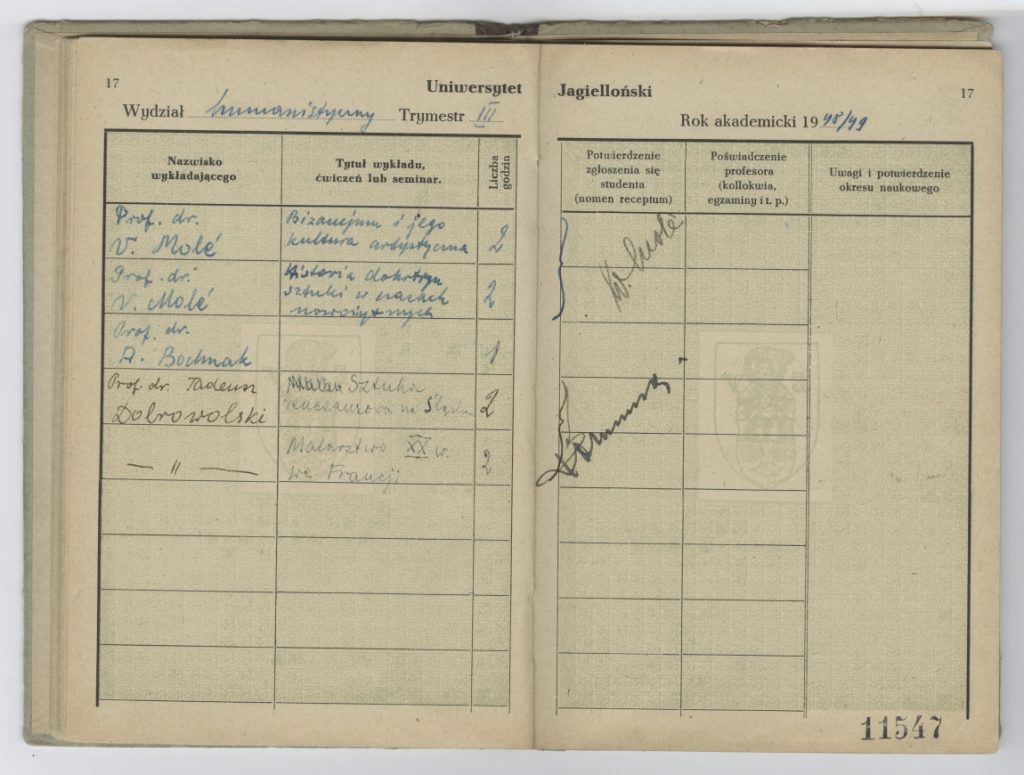 17
Uniwersytet Jagielloński
17
Wydział humanistyczny Trymestr III
Rok akademicki 1948/49
Nazwisko
wykładającego
Tytuł wykładu,
ćwiczeń lub seminar.
Liczba
godzin
Potwierdzenie
zgłoszenia się
studenta
(nomen receptum)
Poświadczenie
profesora
(kollokwia,
egzaminy i t. p.)
Uwagi i potwierdzenie
okresu naukowego
Prof. dr.
V. Molé
Bizancjum i jego
kultura artystyczna
2
W. Molé
Prof. dr.
V. Molé
Historia doktryn
sztuki w czasach
nowożytnych
2
Prof. dr.
A. Bochnak
1
Prof. dr. Tadeusz
Dobrowolski
Sztuka
renesansowa na Śląsku
2
— 11 —
Malarstwo XX w.
we Francji
2
11547